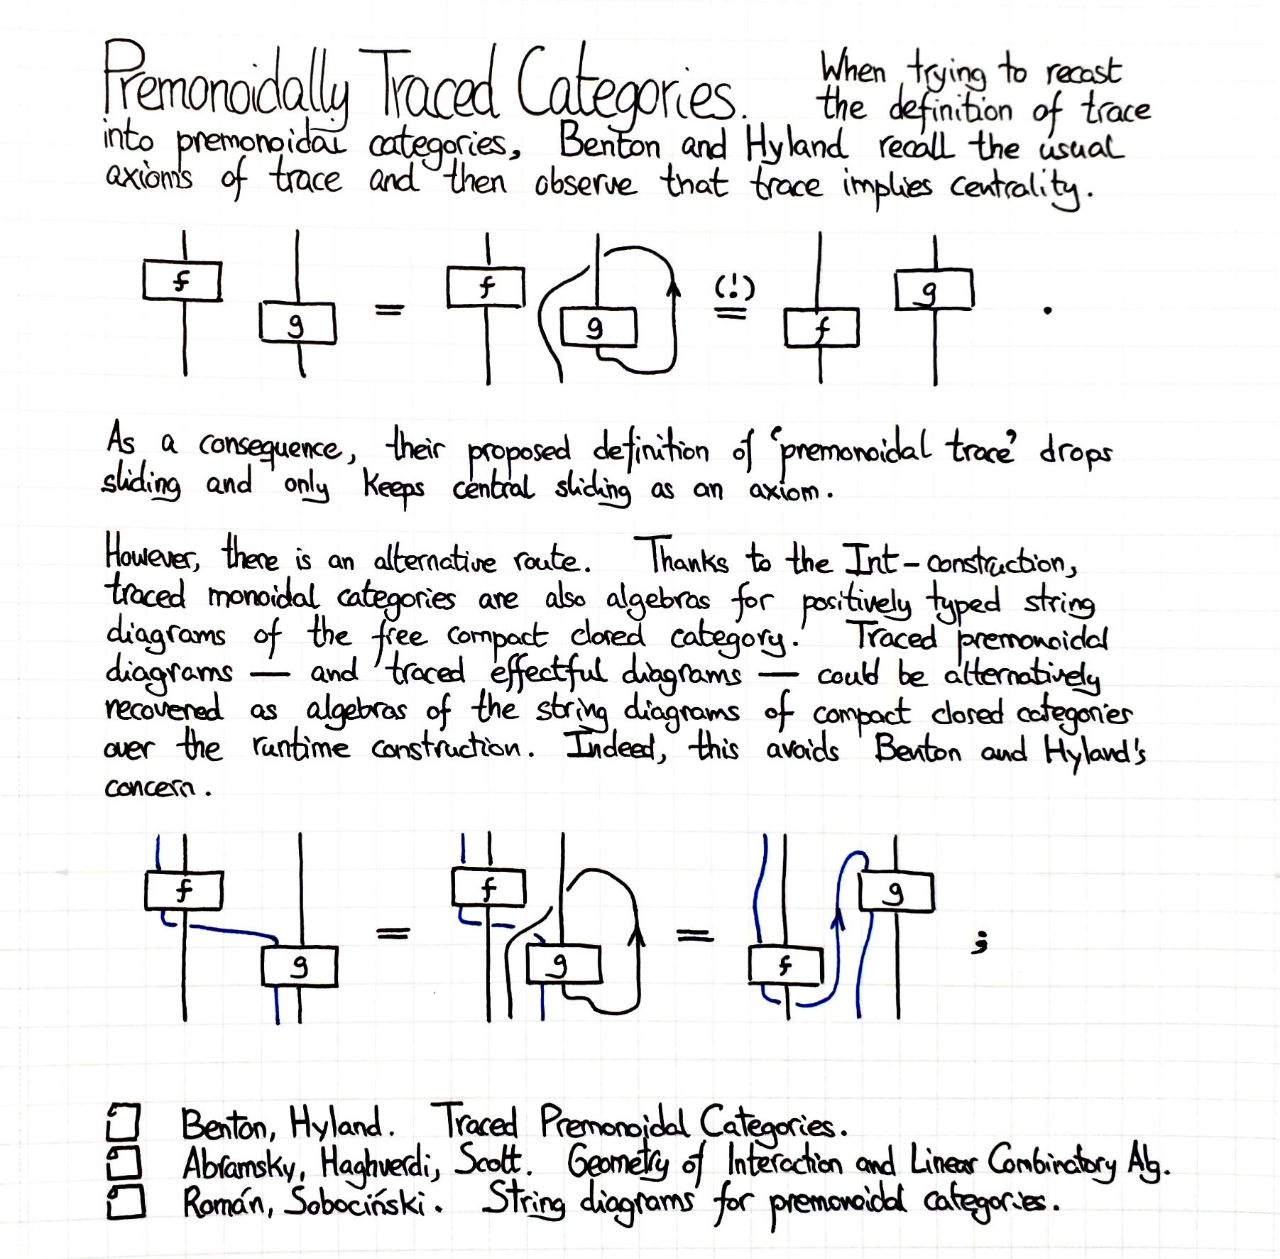 Premonoidally Traced Categories. When trying to recast
the definition of trace
into premonoidal categories, Benton and Hyland recall the usual
axioms of trace and then observe that trace implies centrality.
f g = f g (!) = f g .
As a consequence, their proposed definition of 'premonoidal trace' drops
sliding and only keeps central sliding as an axiom.
However, there is an alternative route. Thanks to the Int-construction,
traced monoidal categories are also algebras for positively typed string
diagrams of the free compact closed category. Traced premonoidal
diagrams — and traced effectful diagrams — could be alternatively
recovered as algebras of the string diagrams of compact closed categories
over the runtime construction. Indeed, this avoids Benton and Hyland's
concern.
f g = f g = f g ;
Benton, Hyland. Traced Premonoidal Categories.
Abramsky, Haghverdi, Scott. Geometry of Interaction and Linear Combinatory Alg.
Román, Sobociński. String diagrams for premonoidal categories.